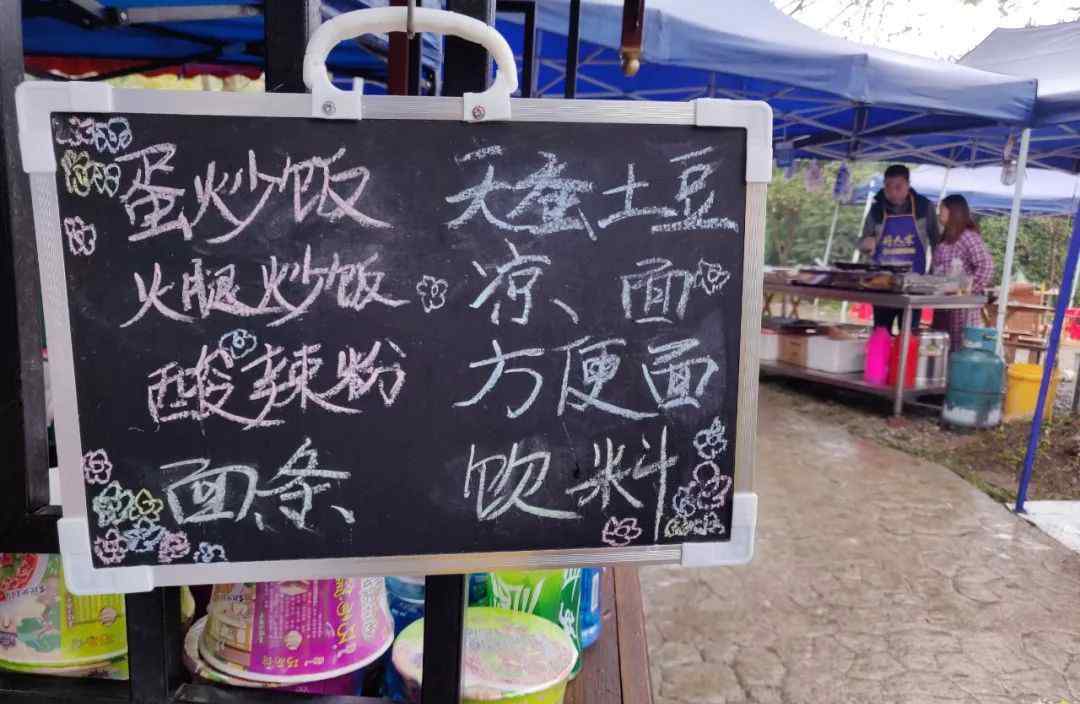 蛋炒饭 天蚕土豆
火腿炒饭 凉、面
酸辣粉 方便面
面条 饮料